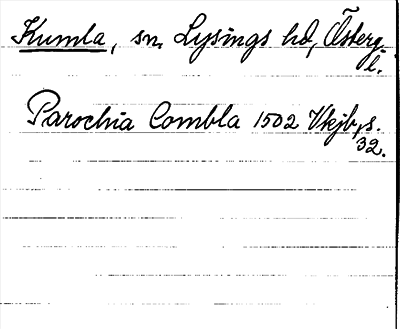 Kumla, sn, Lysings hd, Österg.
l.
Parochia Combla 1502 Vkjb, s.
32.